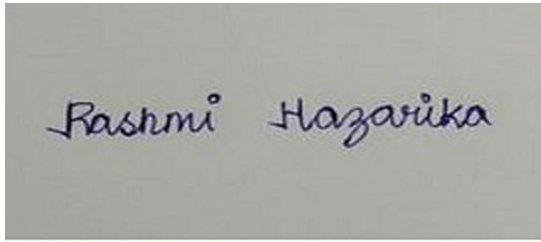 Rashmi Hazarika